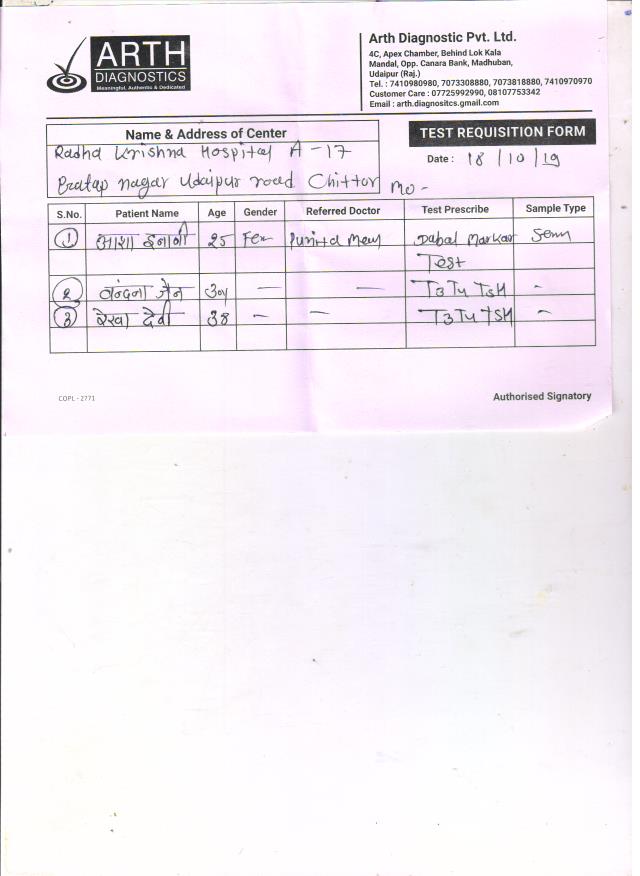 ARTH
DIAGNOSTICS
Meaningful, Authentic & Dedicated
Arth Diagnostic Pvt. Ltd.
4C, Apex Chamber, Behind Lok Kala
Mandal, Opp. Canara Bank, Madhuban,
Udaipur (Raj.)
Tel. : 7410980980, 7073308880, 7073818880, 7410970970
Customer Care : 07725992990, 08107753342
Email : arth.diagnositcs.gmail.com
Name & Address of Center
TEST REQUISITION FORM
Radha Krishna Hospital A-17
Date : 18/10/19
Pratap nagar Udaipur road Chittor Mo -
S.No. Patient Name Age Gender Referred Doctor Test Prescribe Sample Type
1 आशा ईनाणी 25 Fe Dabal Markar
Test
2 वन्दना जैन — — T3 T4 TSH -
3 रेखा देवी 38 - — T3 T4 TSH -
COPL - 2771
Authorised Signatory